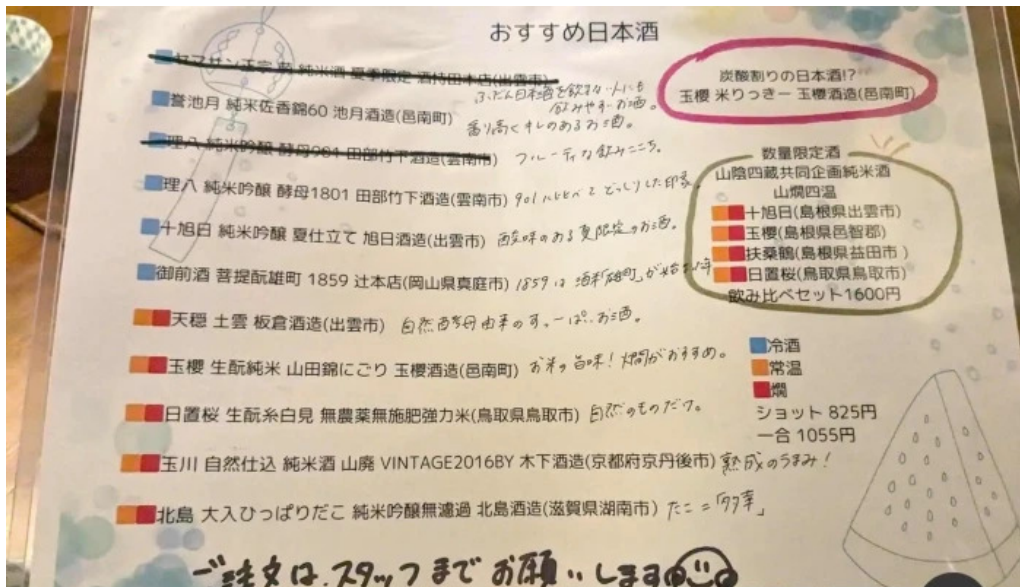 おすすめ日本酒
ヤマサン正宗 純米酒 夏季限定 酒持田本店(出雲市)
ふだん日本酒を飲まない人にも
飲みやすいお酒。
誉池月 純米佐香錦60 池月酒造(邑南町)
香り高くキレのあるお酒。
理八 純米吟醸 酵母901 田部竹下酒造(雲南市) フルーティな飲みごこち。
理八 純米吟醸 酵母1801 田部竹下酒造(雲南市) 901にくらべてどっしりした印象。
十旭日 純米吟醸 夏仕立て 旭日酒造(出雲市) 酸味のある夏限定のお酒。
御前酒 菩提酛雄町 1859 辻本店(岡山県真庭市) 1859は酒米「雄町」が始まった年
天穏 土雲 板倉酒造(出雲市) 自然酵母由来のすっぱいお酒。
玉櫻 生酛純米 山田錦にごり 玉櫻酒造(邑南町) お米の旨味!燗がおすすめ。
日置桜 生酛糸白見 無農薬無施肥強力米(鳥取県鳥取市) 自然のものだけ。
玉川 自然仕込 純米酒 山廃 VINTAGE2016BY 木下酒造(京都府京丹後市) 熟成のうまみ!
北島 大入ひっぱりだこ 純米吟醸無濾過 北島酒造(滋賀県湖南市) たこ=「多幸」
炭酸割りの日本酒!?
玉櫻 米りっきー 玉櫻酒造(邑南町)
数量限定酒
山陰四蔵共同企画純米酒
山燗四温
十旭日(島根県出雲市)
玉櫻(島根県邑智郡)
扶桑鶴(島根県益田市)
日置桜(鳥取県鳥取市)
飲み比べセット1600円
冷酒
常温
燗
ショット 825円
一合 1055円
ご注文は、スタッフまでお願いします